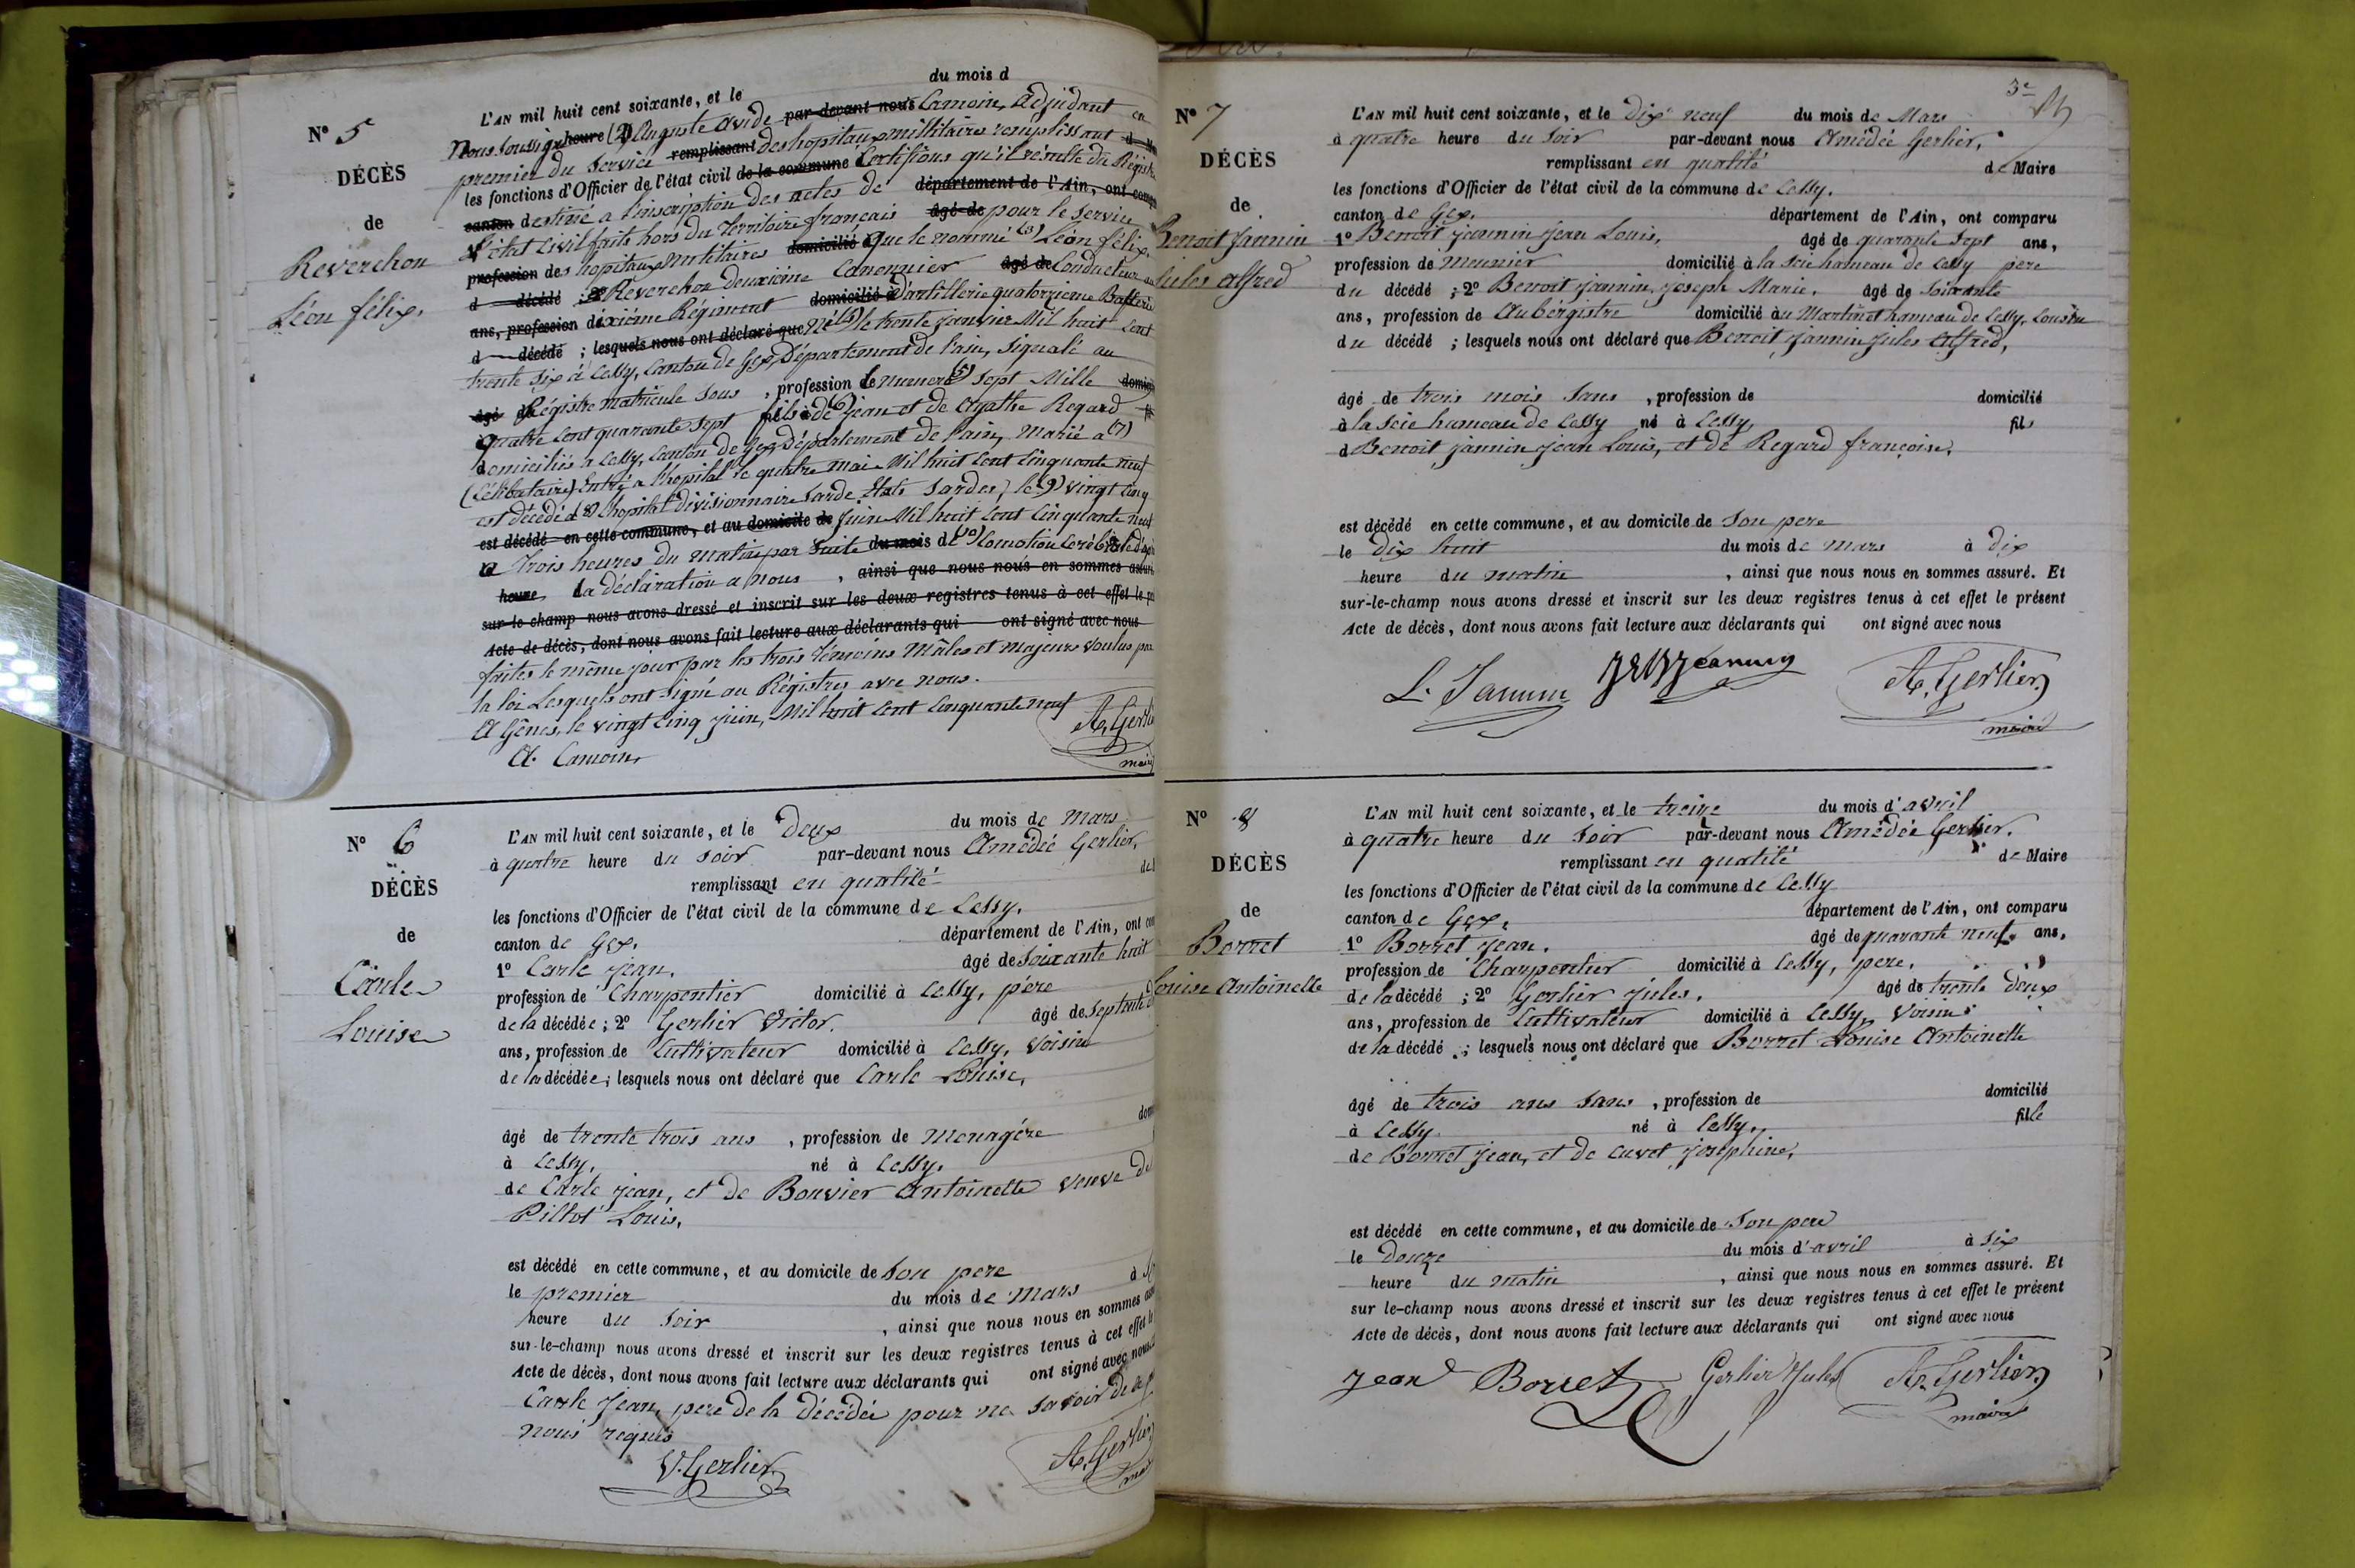 du mois d
L'AN mil huit cent soixante, et le
N° 5
Nous soussigné heure (2) Auguste Avide par-devant nous Camoin, Adjudant en
premier du Service remplissant des hopitaux millitaires remplissant
DÉCÈS
les fonctions d'Officier de l'état civil de la commune Certifions qu'il résulte du Régistre
canton destiné a l'inscription des actes de département de l'Ain, ont
de
l'état Civil faits hors du Territoire français âgé de pour le Service
Reverchon
profession des hopitaux militaires domicilié à que le nommé (3) Léon félix,
d décédé ; 2° Reverchon deuxième Canonnier âgé de Conducteur au
Léon félix,
ans, profession dixième Régiment domicilié à D'artillerie quatorzième Batterie
d décédé ; lesquels nous ont déclaré que né (4) le trente janvier Mil huit Cent
trente Six à Cessy, Canton de Gex, Département de l'ain, Signalé au
âgé de Régistre matricule Sous , profession de numero (5) Sept Mille
quatre Cent quarante Sept fils de (6) jean et de Agathe Regard
domiciliés a Cessy, Canton de Gex, Département de l'ain, Marié a (7)
(Célibataire) Entré a l'hopital le quatre mai Mil huit Cent Cinquante neuf
est décédé a (8) L'hopital divisionnaire Sarde Etats Sardes, le (9) vingt Cinq
est décédé en cette commune, et au domicile de juin Mil huit Cent Cinquante neuf
a Trois heures du Matin par Suite du mois de (10) Comotion Cerébrale d'après
heure la déclaration a nous , ainsi que nous nous en sommes assuré
sur-le-champ nous avons dressé et inscrit sur les deux registres tenus à cet effet le
Acte de décès, dont nous avons fait lecture aux déclarants qui ont signé avec nous
faites le même jour par les trois Témoins Mâles et Majeurs Voulus par
la loi Lesquels ont Signé au Régistres avec nous.
A Gênes, le vingt Cinq juin, Mil huit Cent Cinquante neuf
A. Camoin
A. Gerlier
maire
N° 6
L'AN mil huit cent soixante, et le Deux du mois de Mars
à quatre heure du Soir par-devant nous Amédée Gerlier,
DÉCÈS
remplissant en qualité
les fonctions d'Officier de l'état civil de la commune de Cessy,
de
canton de Gex, département de l'Ain, ont
1° Carle Jean, âgé de Soixante huit
Carle
profession de Charpentier domicilié à Cessy, père
Louise
de la décédée ; 2° Gerlier Victor, âgé de Septante
ans, profession de Cultivateur domicilié à Cessy, Voisin
de la décédée ; lesquels nous ont déclaré que Carle Louise,
âgé de trente trois ans , profession de Menagère
à Cessy, né à Cessy,
de Carle Jean, et de Bouvier Antoinette veuve de
Pillot Louis,
est décédé en cette commune, et au domicile de Son pere
le premier du mois de Mars à
heure du Soir , ainsi que nous nous en sommes
sur-le-champ nous avons dressé et inscrit sur les deux registres tenus à cet effet le
Acte de décès, dont nous avons fait lecture aux déclarants qui ont signé avec nous
Carle Jean, pere de la Décédée pour ne Savoir de ce
nous requis
V. Gerlier
A. Gerlier
3e
N° 7
L'AN mil huit cent soixante, et le Dix neuf du mois de Mars
à quatre heure du Soir par-devant nous Amédée Gerlier,
DÉCÈS
remplissant en qualité de Maire
les fonctions d'Officier de l'état civil de la commune de Cessy,
de
canton de Gex, département de l'Ain, ont comparu
Benoit Jannin
1° Benoit Jannin Jean Louis, âgé de quarante Sept ans,
profession de Meunier domicilié à la Scie hameau de Cessy pere
Jules Alfred
du décédé ; 2° Benoit Jannin, Joseph Marie, âgé de Soixante
ans, profession de Aubergistre domicilié au Martinet hameau de Cessy, Cousin
du décédé ; lesquels nous ont déclaré que Benoit Jannin Jules Alfred,
âgé de trois mois Sans , profession de domicilié
à la Scie hameau de Cessy né à Cessy, fils
d Benoit Jannin Jean Louis, et de Regard françoise,
est décédé en cette commune, et au domicile de Son pere
le Dix huit du mois de Mars à Dix
heure du matin , ainsi que nous nous en sommes assuré. Et
sur-le-champ nous avons dressé et inscrit sur les deux registres tenus à cet effet le présent
Acte de décès, dont nous avons fait lecture aux déclarants qui ont signé avec nous
L. Jannin
A. Gerlier
maire
N° 8
L'AN mil huit cent soixante, et le treize du mois d'avril
à quatre heure du Soir par-devant nous Amédée Gerlier,
DÉCÈS
remplissant en qualité de Maire
les fonctions d'Officier de l'état civil de la commune de Cessy
de
canton de Gex, département de l'Ain, ont comparu
Borret
1° Borret Jean, âgé de quarante neuf ans,
profession de Charpentier domicilié à Cessy, pere,
Louise Antoinette
de la décédé ; 2° Gerlier Jules, âgé de trente Deux
ans, profession de Cultivateur domicilié à Cessy, Voisin
de la décédé ; lesquels nous ont déclaré que Borret Louise Antoinette
âgé de trois ans Sans , profession de domicilié
à Cessy né à Cessy, fille
de Borret Jean, et de Cuvet Josephine,
est décédé en cette commune, et au domicile de Son pere
le Douze du mois d'avril à Six
heure du matin , ainsi que nous nous en sommes assuré. Et
sur le-champ nous avons dressé et inscrit sur les deux registres tenus à cet effet le présent
Acte de décès, dont nous avons fait lecture aux déclarants qui ont signé avec nous
Jean Borret Gerlier Jules A. Gerlier
maire